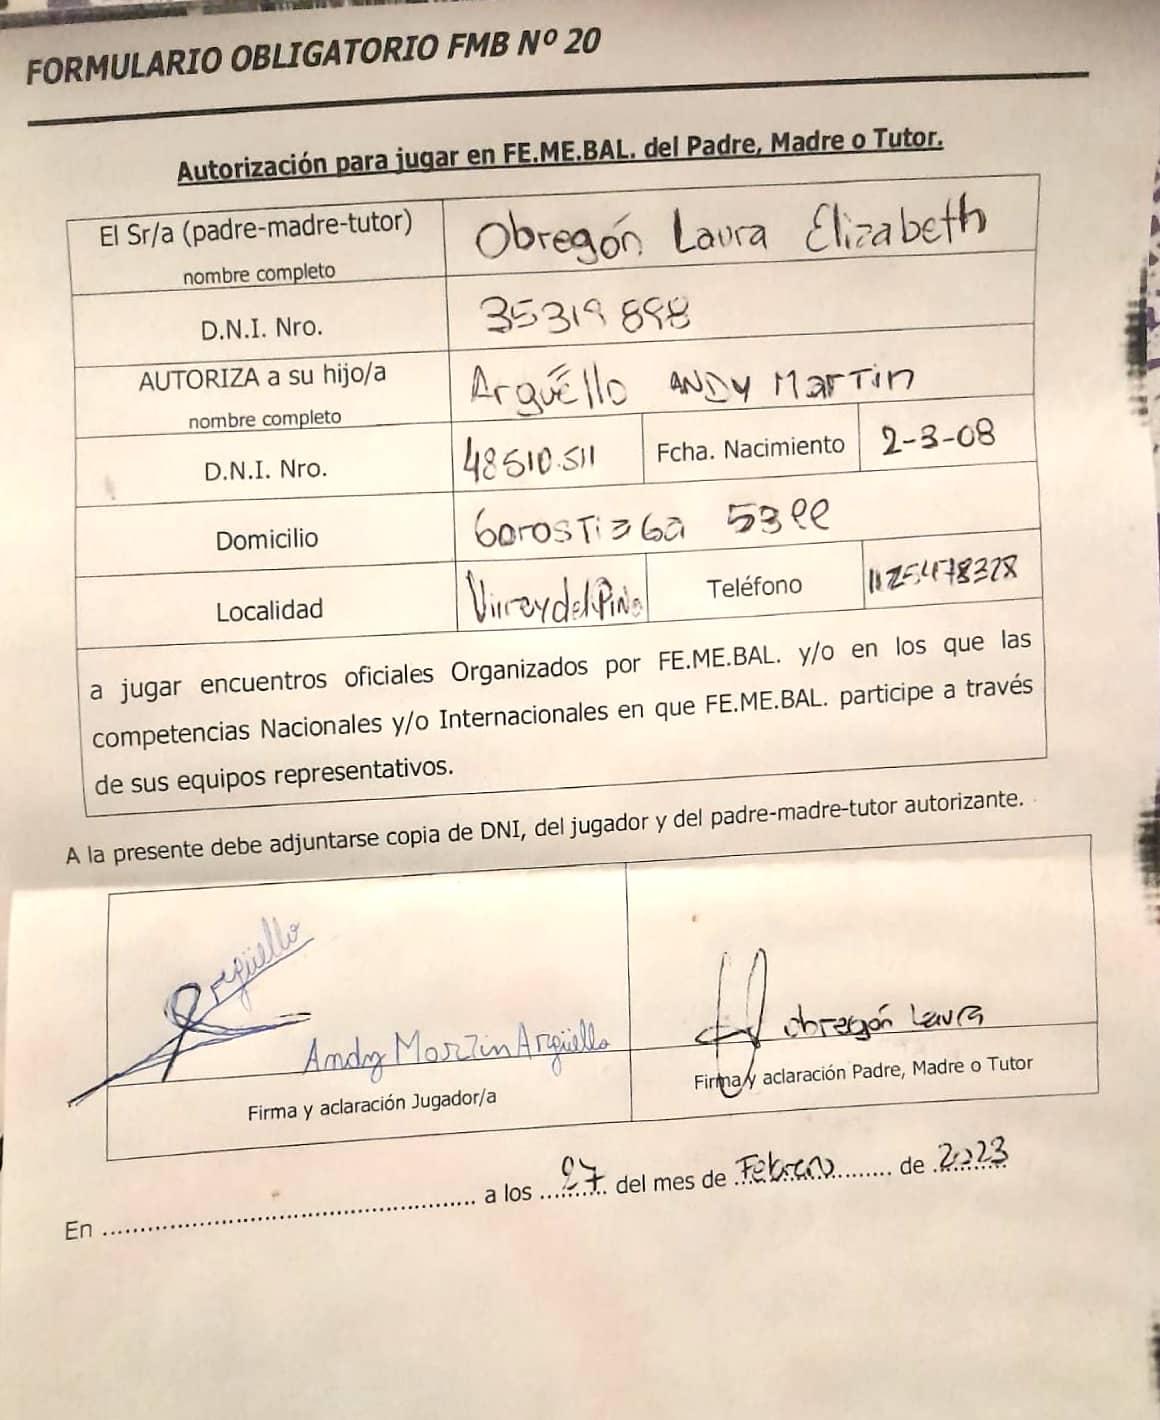 FORMULARIO OBLIGATORIO FMB Nº 20
Autorización para jugar en FE.ME.BAL. del Padre, Madre o Tutor.
El Sr/a (padre-madre-tutor)
nombre completo
Obregón Laura Elizabeth
D.N.I. Nro.
35319898
AUTORIZA a su hijo/a
nombre completo
Argüello ANDY MarTin
D.N.I. Nro.
48510.511
Fcha. Nacimiento
2-3-08
Domicilio
Localidad
Virrey del Pino
Teléfono
1125478328
a jugar encuentros oficiales Organizados por FE.ME.BAL. y/o en los que las
competencias Nacionales y/o Internacionales en que FE.ME.BAL. participe a través
de sus equipos representativos.
A la presente debe adjuntarse copia de DNI, del jugador y del padre-madre-tutor autorizante.
Argüello
Andy Martin Argüello
obregón Laura
Firma y aclaración Jugador/a
Firma y aclaración Padre, Madre o Tutor
En ............................................ a los 27 del mes de Febrero ........ de 2023